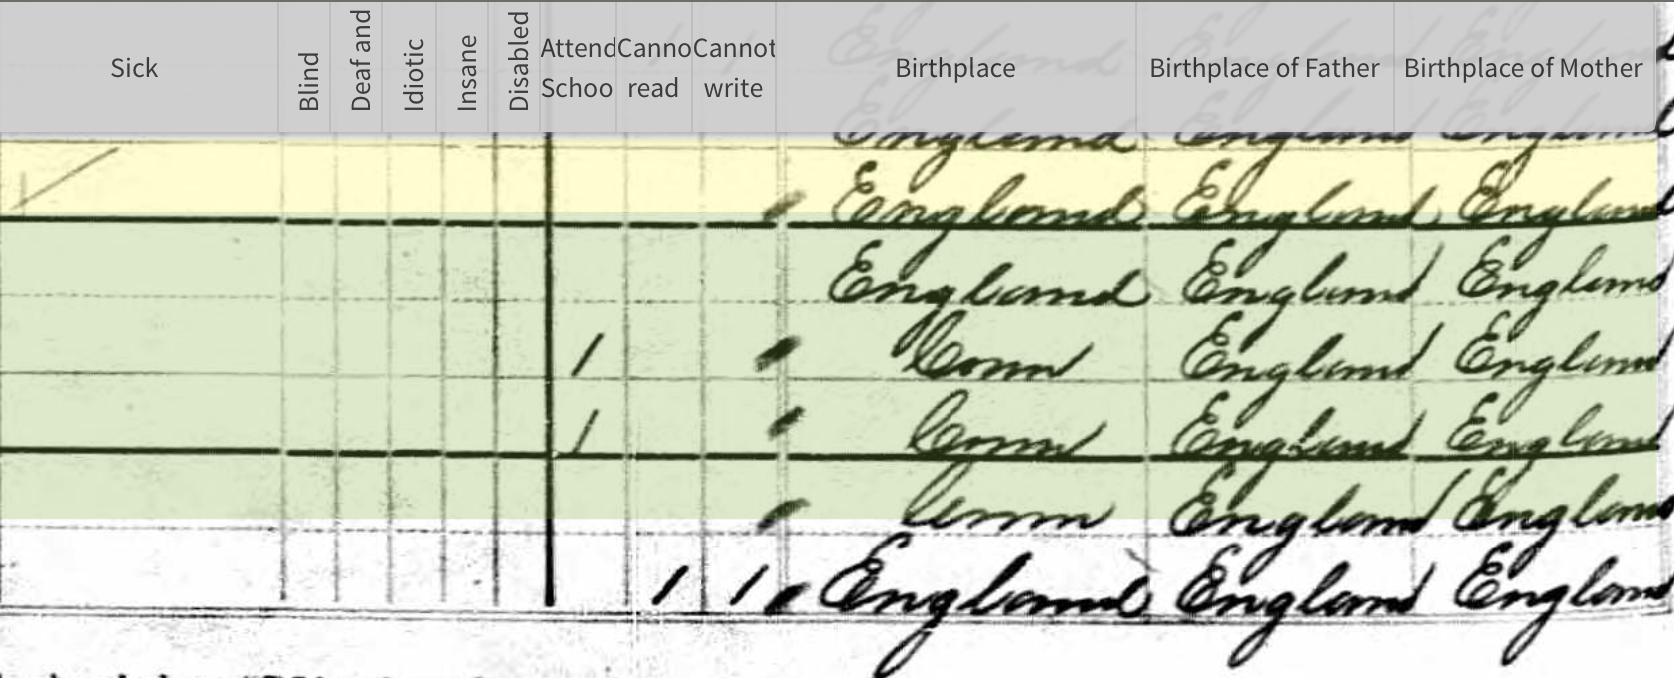 Sick Blind Deaf and Idiotic Insane Disabled Attend Schoo Canno read Cannot write Birthplace Birthplace of Father Birthplace of Mother
England England England
England England England
England England England
1 Conn England England
1 Conn England England
Conn England England
1 1 England England England